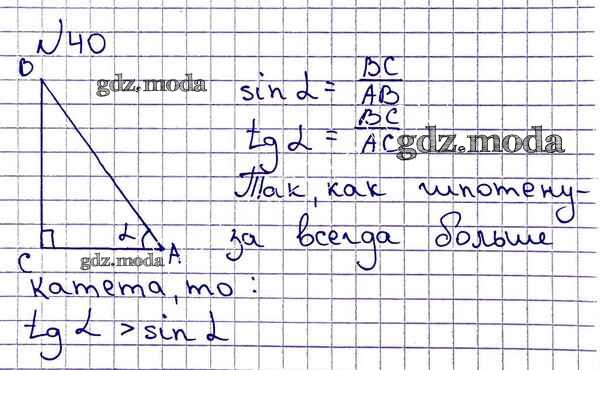 №40
B
gdz.moda
sin α = BC/AB
tg α = BC/AC
gdz.moda
Так, как гипотену-
за всегда больше
α
C
A
gdz.moda
катета, то:
tg α > sin α